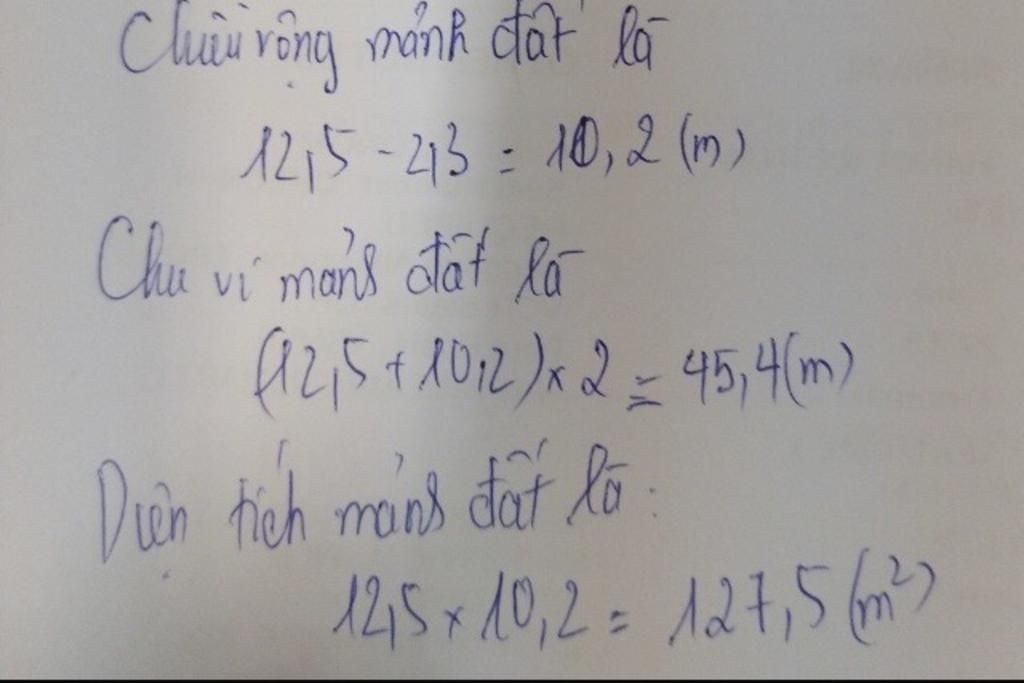 Chiều rộng mảnh đất là
12,5 - 2,3 = 10,2 (m)
Chu vi mảnh đất là
(12,5 + 10,2) × 2 = 45,4 (m)
Diện tích mảnh đất là:
12,5 × 10,2 = 127,5 (m²)